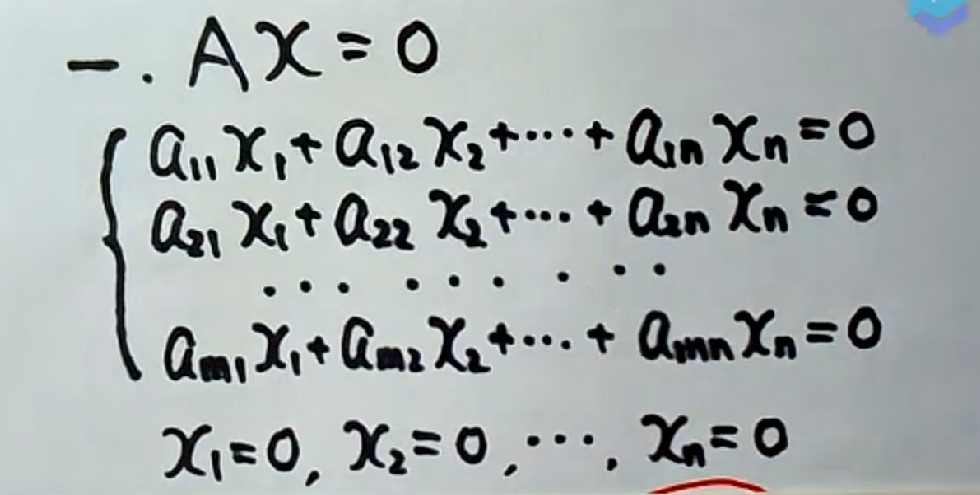 一. AX=0
a₁₁x₁+a₁₂x₂+⋯+a₁ₙxₙ=0
a₂₁x₁+a₂₂x₂+⋯+a₂ₙxₙ=0
⋯ ⋯ ⋯
aₘ₁x₁+aₘ₂x₂+⋯+aₘₙxₙ=0
x₁=0, x₂=0, ⋯, xₙ=0